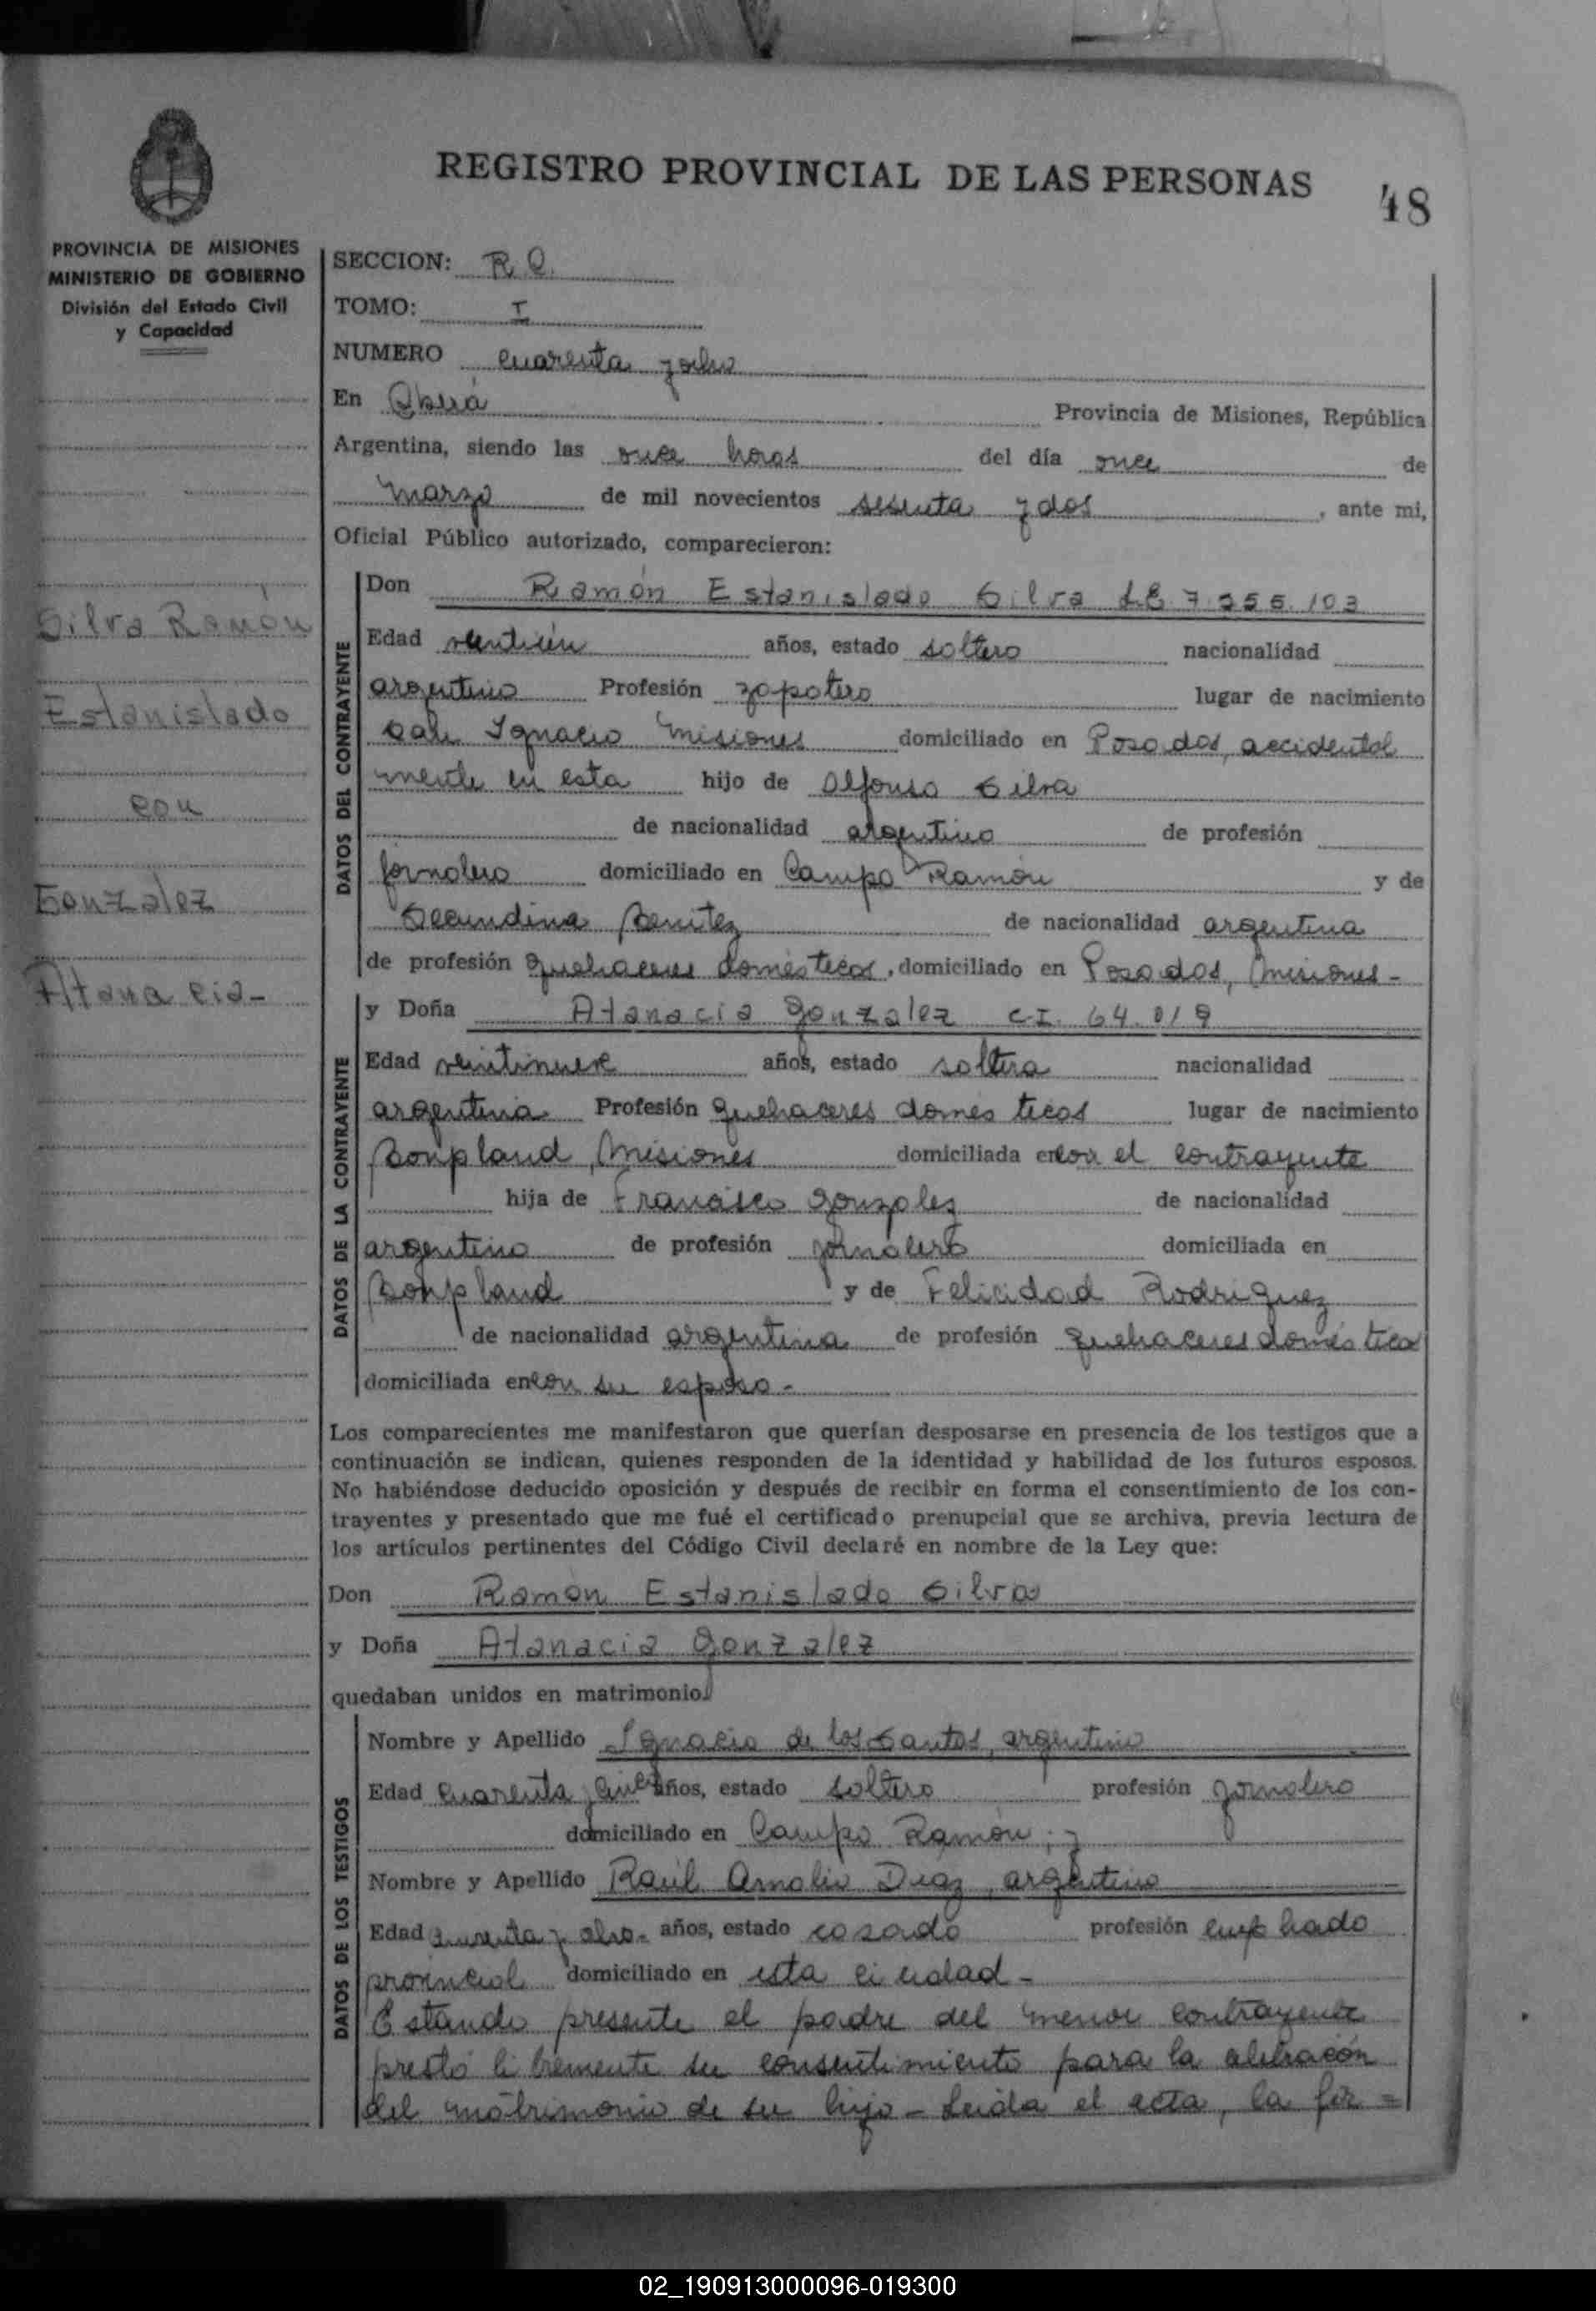 REGISTRO PROVINCIAL DE LAS PERSONAS
48
PROVINCIA DE MISIONES
MINISTERIO DE GOBIERNO
División del Estado Civil
y Capacidad
Silva Ramón
Estanislado
con
Gonzalez
Atanacia-
SECCION: R.Q.
TOMO: I
NUMERO cuarenta y ocho
En Oberá Provincia de Misiones, República
Argentina, siendo las once horas del día once de
marzo de mil novecientos sesenta y dos, ante mi,
Oficial Público autorizado, comparecieron:
DATOS DEL CONTRAYENTE
Don Ramón Estanislado Silva L.E. 7.255.103
Edad años, estado soltero nacionalidad
argentino Profesión zapatero lugar de nacimiento
San Ignacio Misiones domiciliado en Posadas, accidental
mente en esta hijo de Alfonso Silva
de nacionalidad argentino de profesión
jornalero domiciliado en Campo Ramón y de
Secundina Benitez de nacionalidad argentina
de profesión quehaceres domésticos, domiciliado en Posadas, Misiones-
DATOS DE LA CONTRAYENTE
y Doña Atanacia Gonzalez C.I. 64.019
Edad veintinueve años, estado soltera nacionalidad
argentina Profesión quehaceres domesticos lugar de nacimiento
Bonpland, Misiones domiciliada en con el contrayente
hija de Francisco Gonzalez de nacionalidad
argentino de profesión jornalero domiciliada en
Bonpland y de Felicidad Rodriguez
de nacionalidad argentina de profesión quehaceres doméstico
domiciliada en con su esposo-
Los comparecientes me manifestaron que querían desposarse en presencia de los testigos que a
continuación se indican, quienes responden de la identidad y habilidad de los futuros esposos.
No habiéndose deducido oposición y después de recibir en forma el consentimiento de los con-
trayentes y presentado que me fué el certificado prenupcial que se archiva, previa lectura de
los artículos pertinentes del Código Civil declaré en nombre de la Ley que:
Don Ramón Estanislado Silva
y Doña Atanacia Gonzalez
quedaban unidos en matrimonio.
DATOS DE LOS TESTIGOS
Nombre y Apellido Ignacio de los Santos, argentino
Edad cuarenta y años, estado soltero profesión jornalero
domiciliado en Campo Ramón; y
Nombre y Apellido Raúl Amalio Diaz, argentino
Edad años, estado casado profesión empleado
provincial domiciliado en esta ciudad-
Estando presente el padre del menor contrayente
prestó libremente su consentimiento para la celebración
del matrimonio de su hijo - Leída el acta, la fir=
02_190913000096-019300